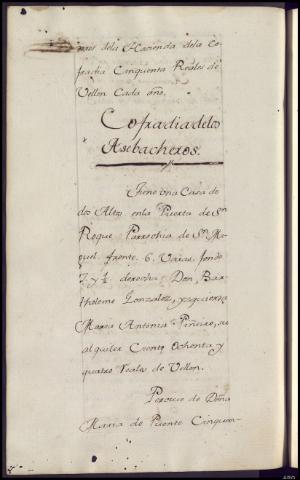 nes dela Hazienda dela Co
fradia Cinquenta Reales de
Vellon Cada año.
Cofradia delos
Asebacheros.
Tiene una Casa de
dos Altos enla Puerta de Sn
Roque Parrochia de Sn Mi
guel. frente. 6. Varas fondo
7 y ½ derecha Don Bar
tholome Gonzalez, yzquierda
Maria Antonia Piñeiro, su
alquiler Ciento ochenta y
quatro Reals de Vellon.
Percive de Doña
Maria de Puente Cinquen-